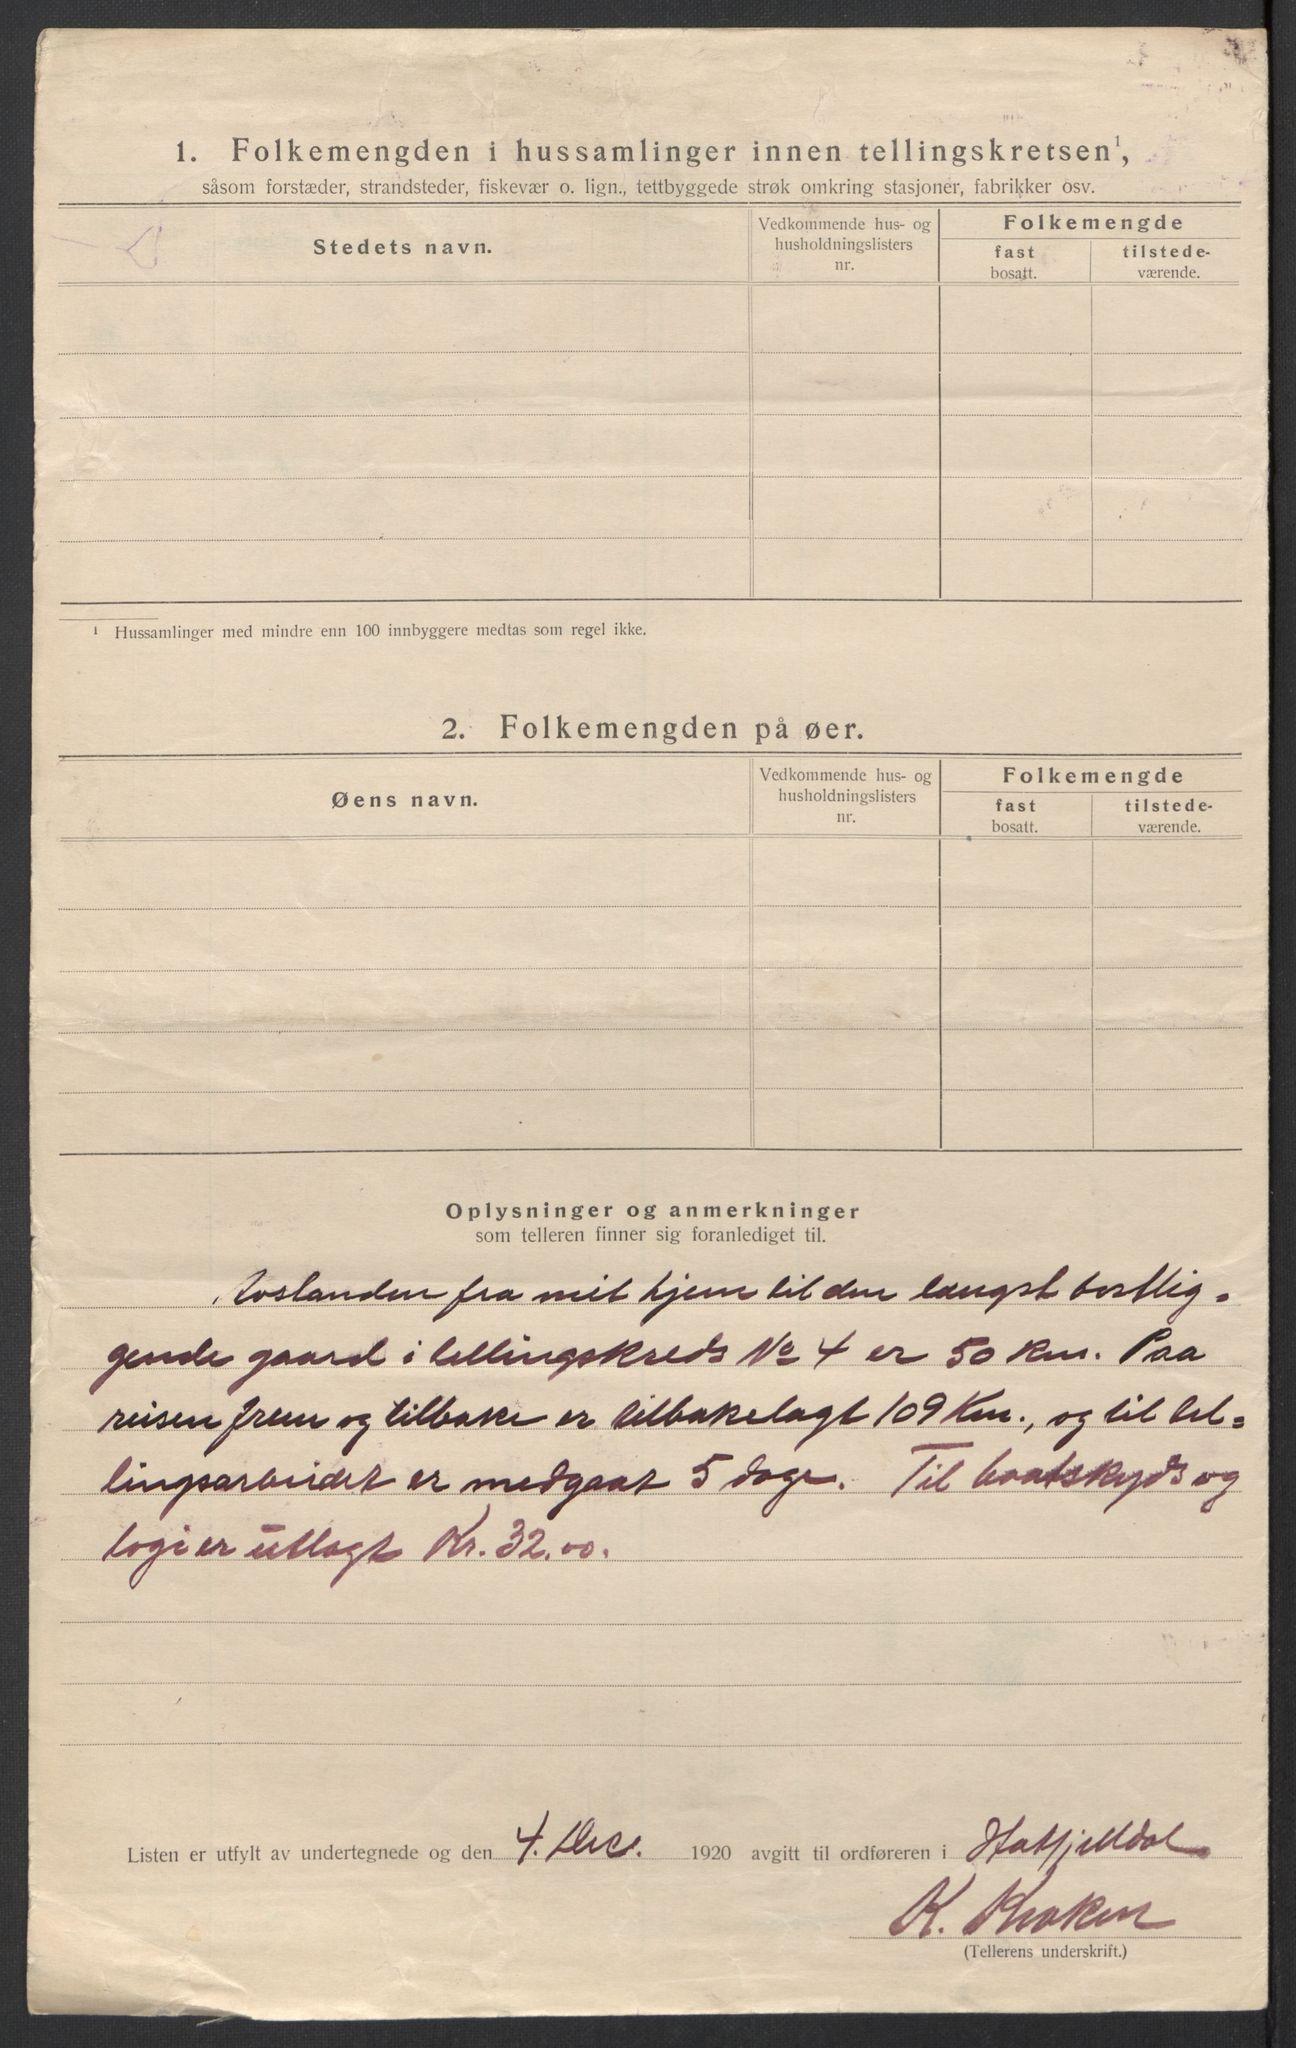 1. Folkemengden i hussamlinger innen tellingskretsen¹,
såsom forstæder, strandsteder, fiskevær o. lign., tettbyggede strøk omkring stasjoner, fabrikker osv.
Stedets navn.
Vedkommende hus- og
husholdningslisters
nr.
Folkemengde
fast
bosatt.
tilstede-
værende.
¹ Hussamlinger med mindre enn 100 innbyggere medtas som regel ikke.
2. Folkemengden på øer.
Øens navn.
Vedkommende hus- og
husholdningslisters
nr.
Folkemengde
fast
bosatt.
tilstede-
værende.
Oplysninger og anmerkninger
som telleren finner sig foranlediget til.
Avstanden fra mit hjem til den længst bortlig-
gende gaard i tellingskreds No 4 er 50 km. Paa
reisen frem og tilbake er tilbakelagt 109 Km., og til tel-
lingsarbeidet er medgaat 5 dage. Til baatskyds og
logi er utlagt Kr. 32.00.
Listen er utfylt av undertegnede og den 4. Dec. 1920 avgitt til ordføreren i Hatfjelldal
K. Kroken
(Tellerens underskrift.)